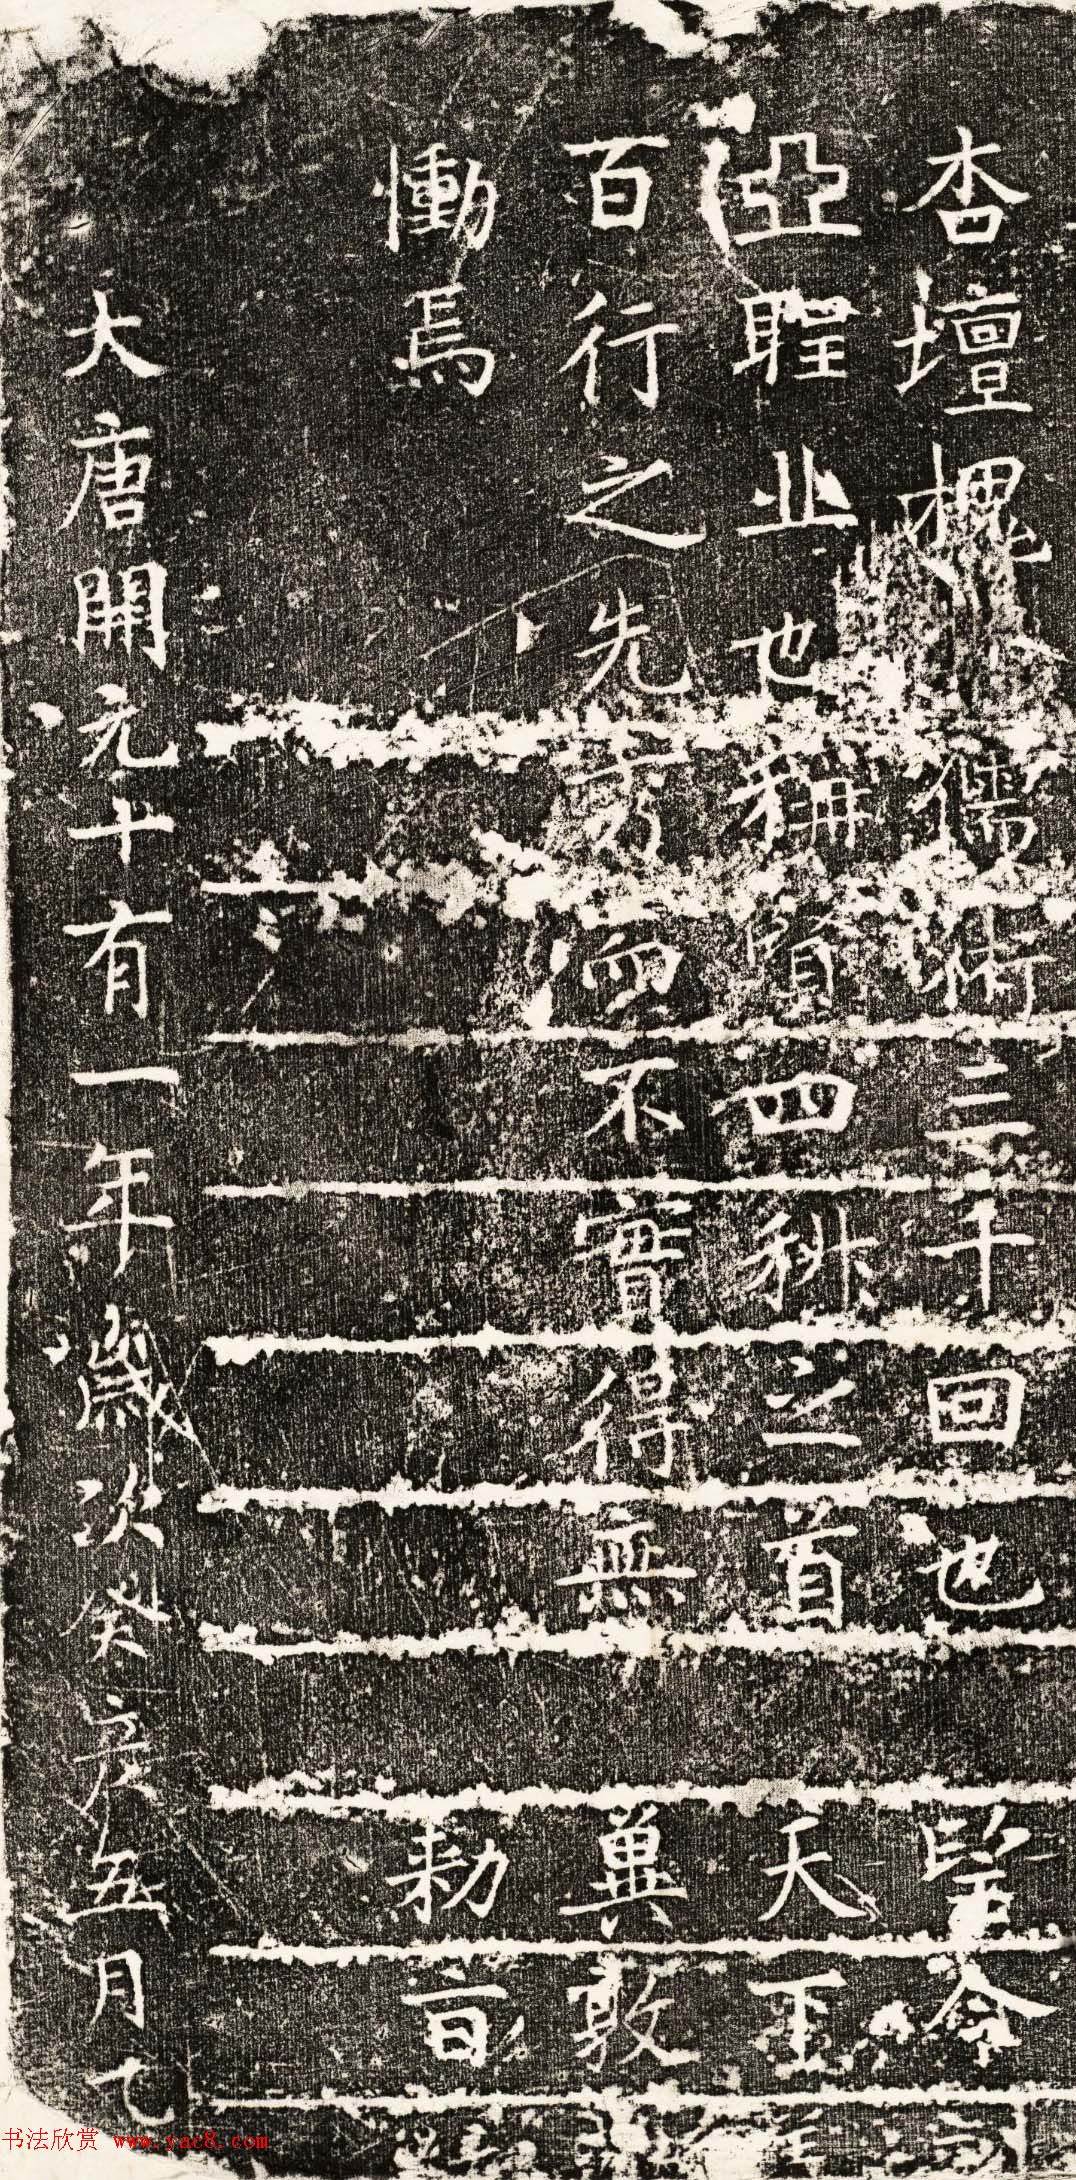 杏壇槐
儒術三千回也
聖令
亞聖業也稱賢四科之首
天王
百行之先
而不實得無
冀敦
慟焉
勅旨
大唐開元十有一年歲次癸亥五月乙
书法欣赏 www.yac8.com